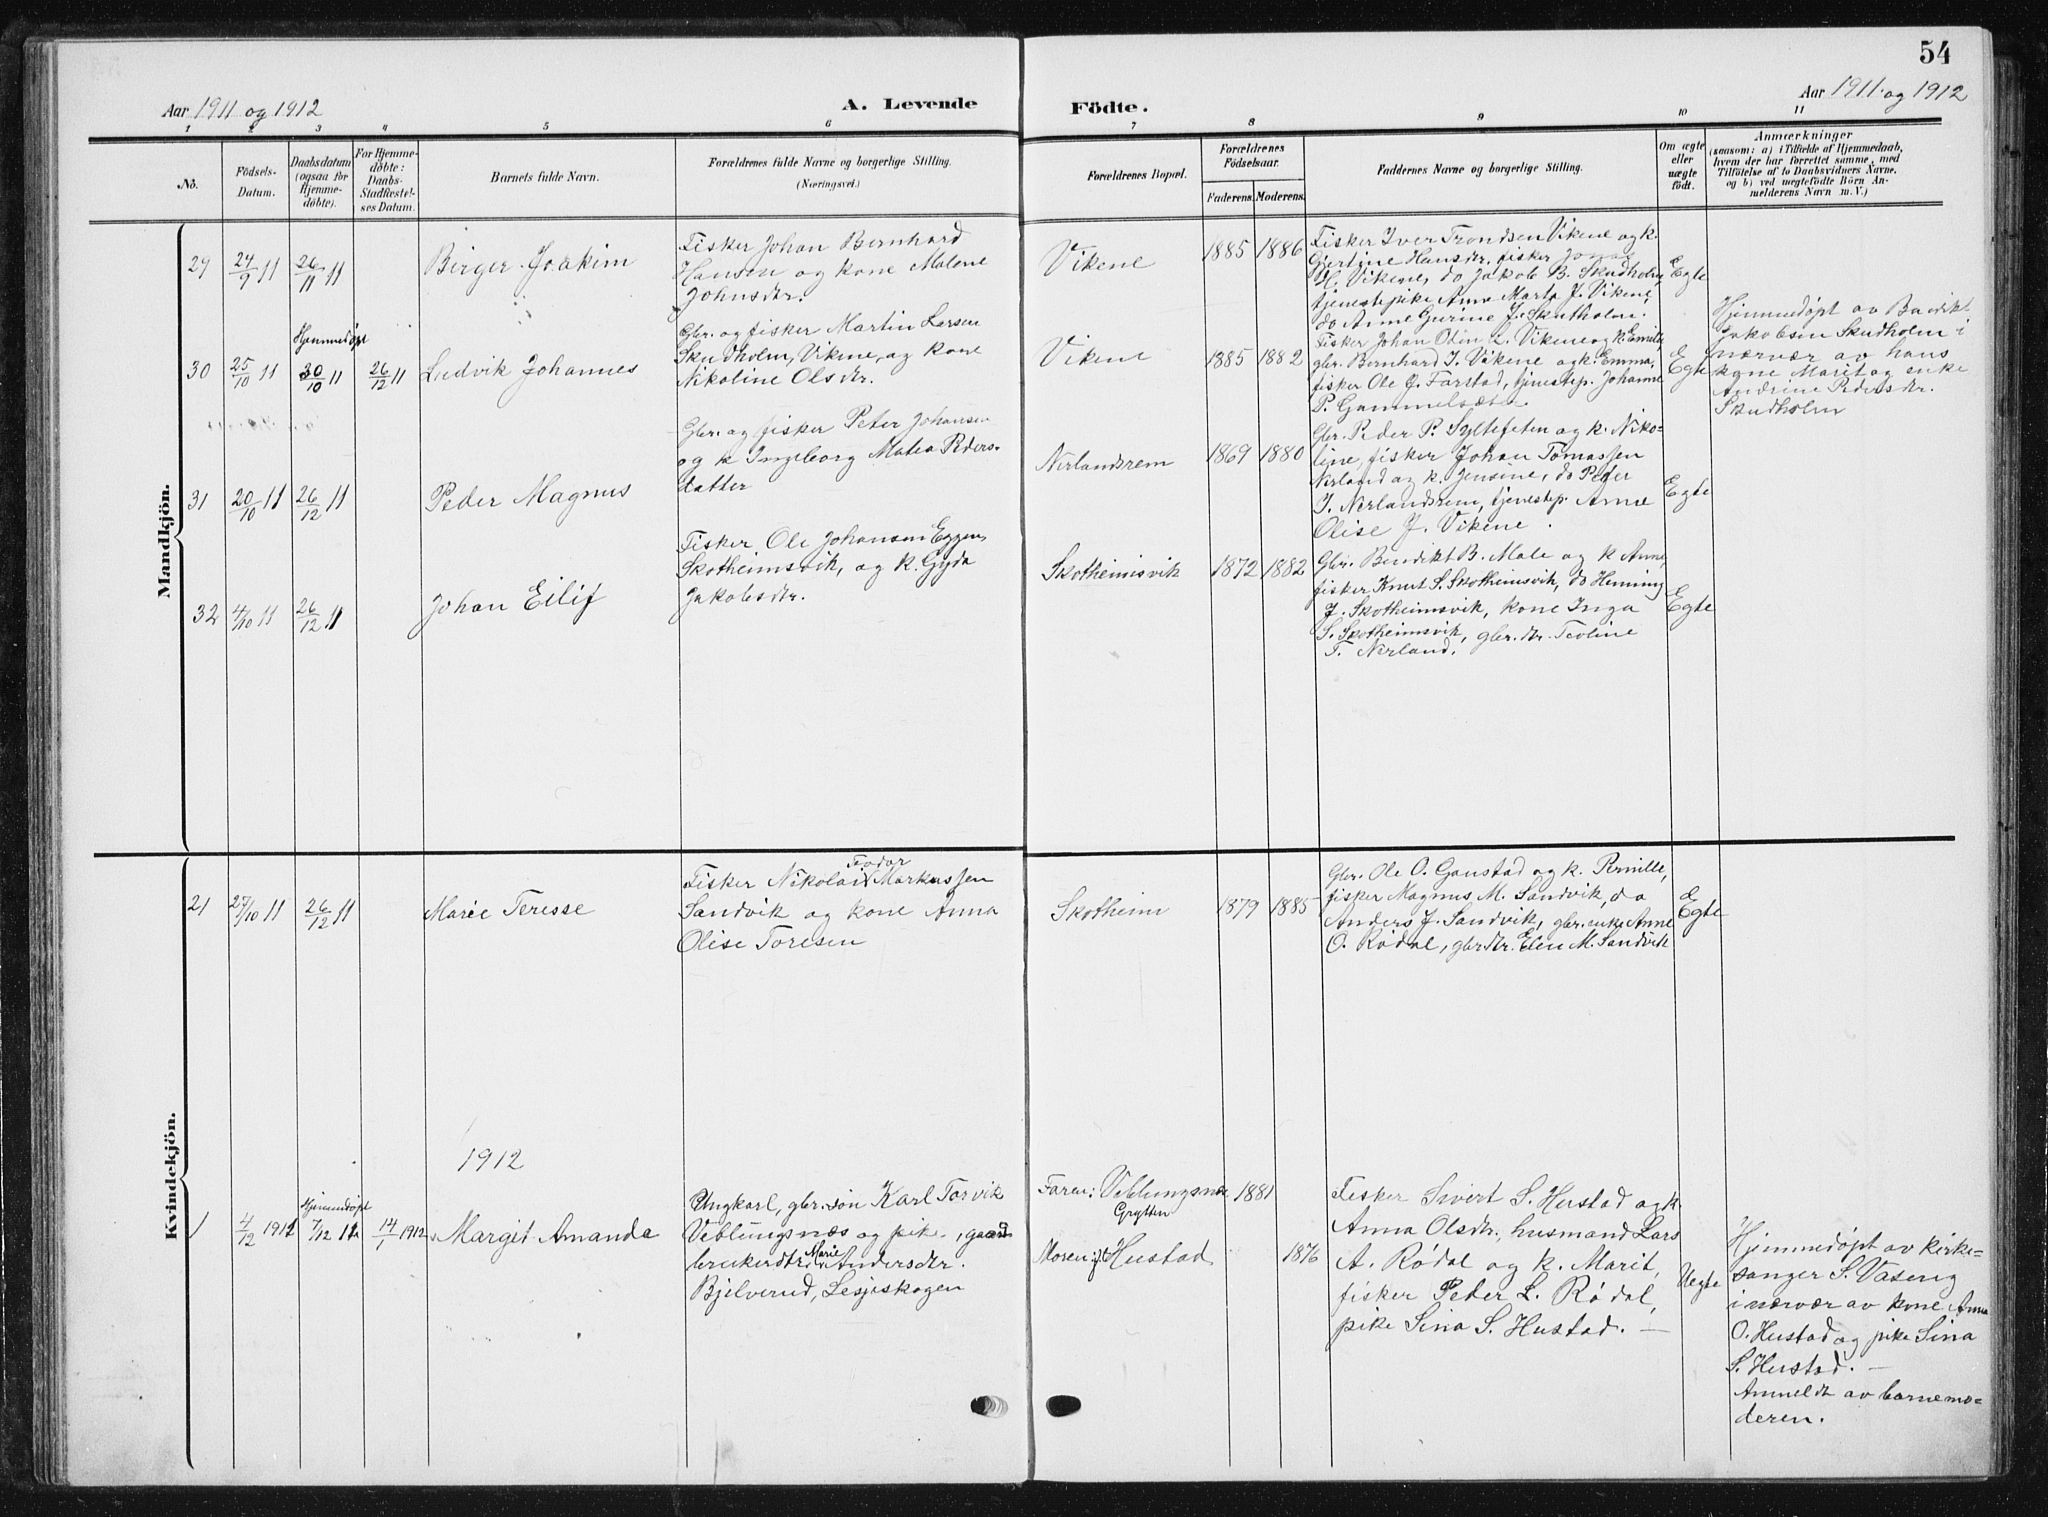 54
Aar 1911 og 1912
A. Levende
Födte.
Aar 1911 og 1912
1 2 3 4 5 6 7 8 9 10 11
No.
Födsels-
Datum.
Daabsdatum
(ogsaa for
Hjemme-
döbte).
For Hjemme-
döbte:
Daabs-
Stadfæstel-
ses Datum.
Barnets fulde Navn.
Forældrenes fulde Navne og borgerlige Stilling.
(Næringsvei.)
Forældrenes Bopæl.
Forældrenes
Födselsaar.
Faderens. Moderens.
Faddernes Navne og borgerlige Stilling.
Om ægte
eller
uægte
födt.
Anmærkninger
(saasom: a) i Tilfælde af Hjemmedaab,
hvem der har forrettet samme, med
Tilföielse af to Daabsvidners Navne.
og b) ved uægtefödte Börn An-
melderens Navn m. V.)
Mandkjön.
29 24/9 11 26/11 11 Birger Joakim
Fisker Johan Bernhard
Hansen og kone Malene
Johnsdtr.
Vikene 1885 1886
Fisker Iver Trondsen Vikene og k.
Gjertine Hansdtr. fisker Jonas
H. Vikene, do Jakob B. Skudholm,
tjenestepike Anna Marta J. Vikene,
do Anne Gurine J. Skutholm.
Egte
30 25/10 11 Hjemmedøpt 30/10 11 26/12 11 Ludvik Johannes
Gbr. og fisker Martin Larsen
Skudholm, Vikene, og kone
Nikoline Olsdtr.
Vikene 1885 1882
Fisker Johan Odin L. Vikene og k. Emilie,
gbr. Bernhard I. Vikene og k. Emma,
fisker Ole J. Farstad, tjenestep. Johanne
P. Gammelsæter
Egte
Hjemmedøpt av Bendikt
Jakobsen Skudholm i
nærvær av hans
kone Marit og enke
Andrine Pedersdtr.
Skudholm
31 20/10 11 26/12 11 Peder Magnus
Gbr. og fisker Peter Johansen
og k Ingeborg Matea Peders-
datter
Nerlandsrem 1869 1880
Gbr. Peder P. Syltefeten og k. Niko-
line, fisker Johan Tomassen
Nerland og k. Jensine, do Peder
J. Nerlandsrem, tjenestep. Anne
Olise J. Vikene.
Egte
32 4/10 11 26/12 11 Johan Eilif
Fisker Ole Johansen Eggen,
Skotheimsvik, og k. Gyda
Jakobsdtr.
Skotheimsvik 1872 1882
Gbr. Bendikt B. Male og k Anne,
fisker Knut S. Skotheimsvik, do Henning
J. Skotheimsvik, kone Inga
S. Skotheimsvik, gbr. dtr. Teoline
T. Nerland.
Egte
Kvindekjön.
21 27/10 11 26/12 11 Marie Teresse
Fisker Nikolai Teodor Markussen
Sandvik og kone Anna
Olise Toresen
Skotheim 1879 1885
Gbr. Ole O. Gaustad og k. Pernille,
fisker Magnus M. Sandvik, do
Anders J. Sandvik, gbr. enke Anne
O. Rødal, gbr. dtr. Elen M. Sandvik
Egte
1912
1 4/12 1911 Hjemmedøpt 7/12 11 14/1 1912 Margit Amanda
Ungkarl, gbr. søn Karl Torvik
Veblungsnæs og pike, gaard
brukerdtr. Marie Andersdtr.
Bjelverud, Lesjeskogen
Faren: Veblungsnæs 1881
Grytten
Moren: Hustad 1876
Fisker Sivert S. Hustad og k.
Anna Olsdtr., husmand Lars
A. Rødal og k. Marit,
fisker Peder L. Rødal,
pike Sina S. Hustad. —
Uegte
Hjemmedøpt av kirke-
sanger S. Vaseng
i nærvær av kone Anna
O. Hustad og pike Sina
S. Hustad. —
Anmeldt av barnemo-
deren.